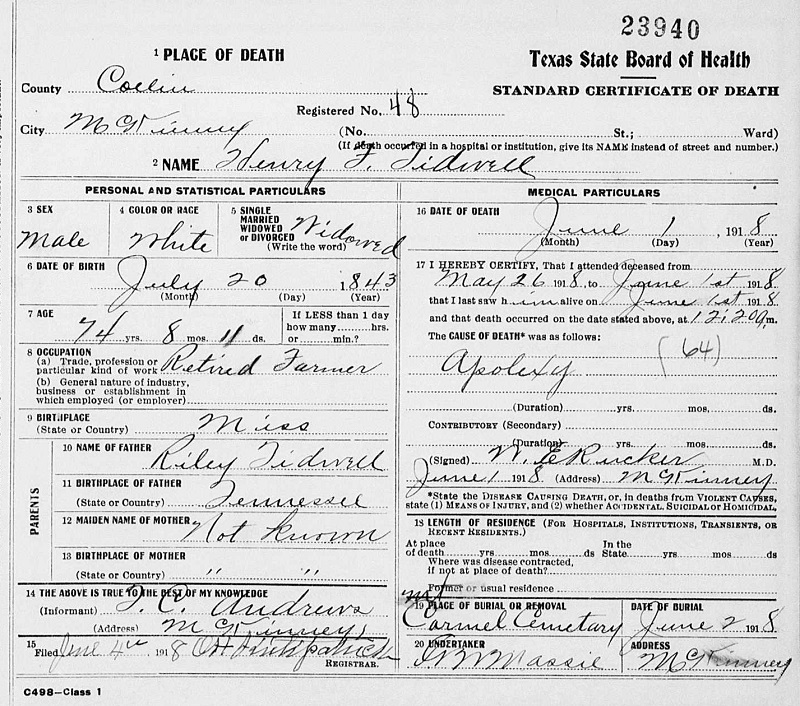 23940
1 PLACE OF DEATH
Texas State Board of Health
STANDARD CERTIFICATE OF DEATH
County Collin
Registered No. 48
City McKinney (No. St.; Ward)
(If death occurred in a hospital or institution, give its NAME instead of street and number.)
2 NAME Henry F. Tidwell
PERSONAL AND STATISTICAL PARTICULARS
3 SEX Male
4 COLOR OR RACE White
5 SINGLE MARRIED WIDOWED or DIVORCED (Write the word) Widowed
6 DATE OF BIRTH July 20 1843
(Month) (Day) (Year)
7 AGE 74 yrs. 8 mos. 11 ds.
If LESS than 1 day
how many hrs.
or min.?
8 OCCUPATION
(a) Trade, profession or
particular kind of work Retired Farmer
(b) General nature of industry,
business or establishment in
which employed (or employer)
9 BIRTHPLACE
(State or Country) Miss
PARENTS
10 NAME OF FATHER Riley Tidwell
11 BIRTHPLACE OF FATHER
(State or Country) Tennessee
12 MAIDEN NAME OF MOTHER Not Known
13 BIRTHPLACE OF MOTHER
(State or Country) " "
14 THE ABOVE IS TRUE TO THE BEST OF MY KNOWLEDGE
(Informant) T. C. Andrews
(Address) McKinney
15 Filed June 4 1918
REGISTRAR.
C498—Class 1
MEDICAL PARTICULARS
16 DATE OF DEATH June 1, 1918
(Month) (Day) (Year)
17 I HEREBY CERTIFY, That I attended deceased from
May 26 1918, to June 1st 1918
that I last saw him alive on June 1st 1918
and that death occurred on the date stated above, at 12:20 m.
The CAUSE OF DEATH* was as follows:
(64)
Apolexy
(Duration) yrs. mos. ds.
CONTRIBUTORY (Secondary)
(Duration) yrs. mos. ds.
(Signed) W. E Rucker M.D.
June 1 1918 (Address) McKinney
*State the DISEASE CAUSING DEATH, or, in deaths from VIOLENT CAUSES,
state (1) MEANS OF INJURY, and (2) whether ACCIDENTAL, SUICIDAL or HOMICIDAL.
18 LENGTH OF RESIDENCE (FOR HOSPITALS, INSTITUTIONS, TRANSIENTS, OR
RECENT RESIDENTS.)
At place In the
of death yrs. mos. ds State yrs. mos. ds
Where was disease contracted,
if not at place of death?
Former or usual residence
19 PLACE OF BURIAL OR REMOVAL
Mt Carmel Cemetary
DATE OF BURIAL
June 2 1918
20 UNDERTAKER
Massie
ADDRESS
McKinney